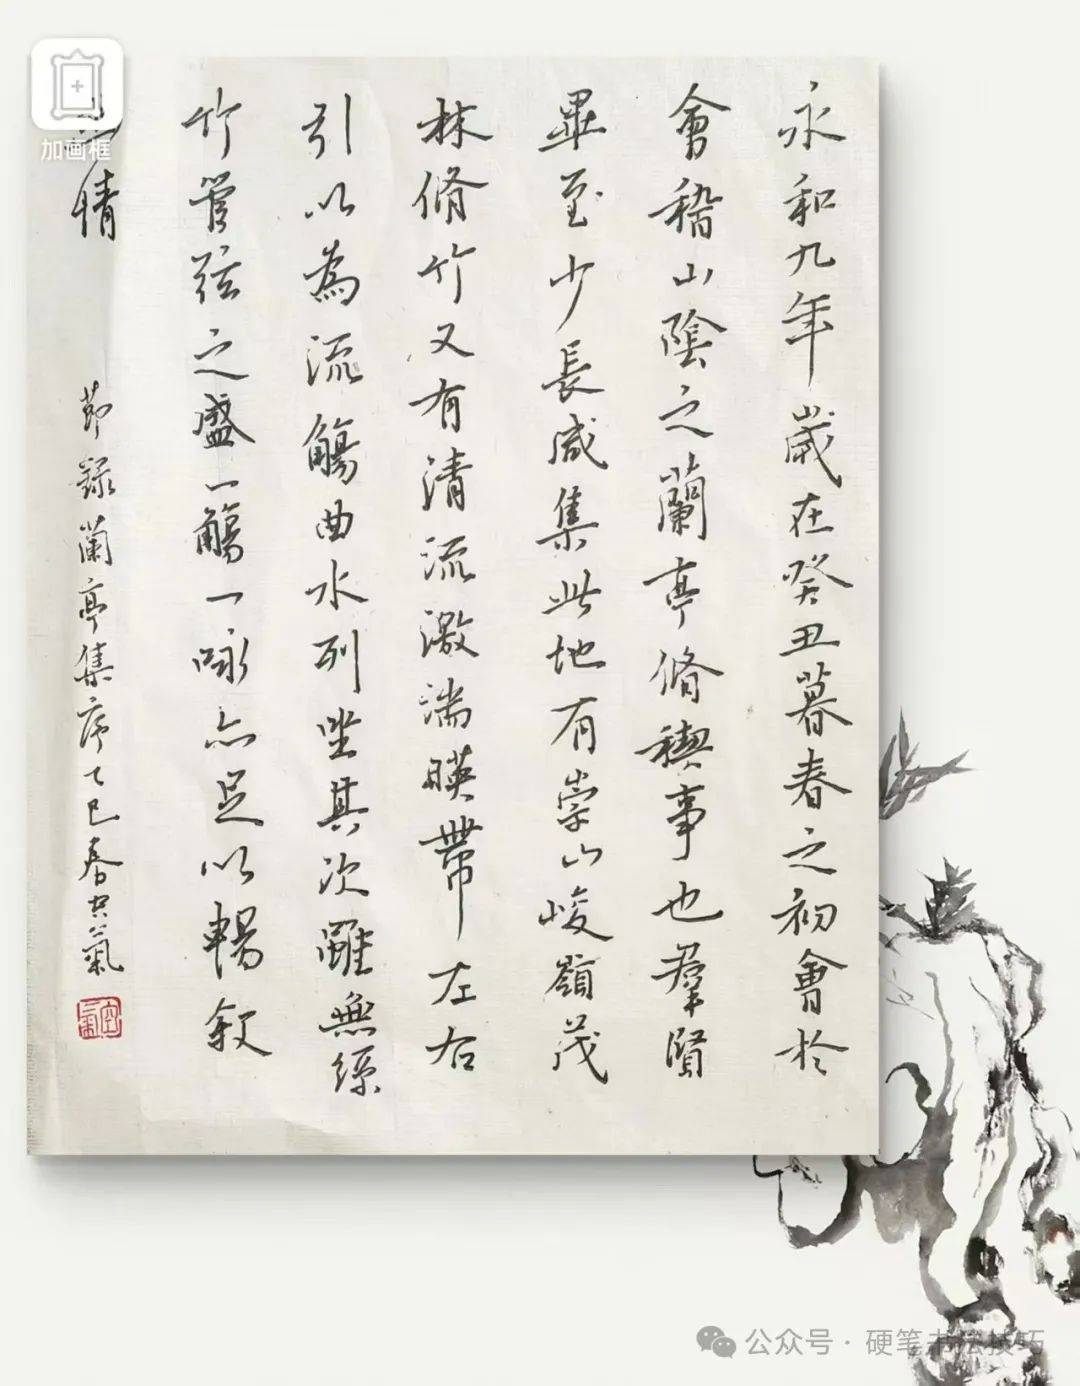 永和九年歲在癸丑暮春之初會於
會稽山陰之蘭亭脩禊事也羣賢
畢至少長咸集此地有崇山峻嶺茂
林脩竹又有清流激湍暎帶左右
引以為流觴曲水列坐其次雖無絲
竹管弦之盛一觴一咏亦足以暢叙
情
節録蘭亭集序乙巳春空氣
空氣
加画框
公众号 · 硬笔书法技巧